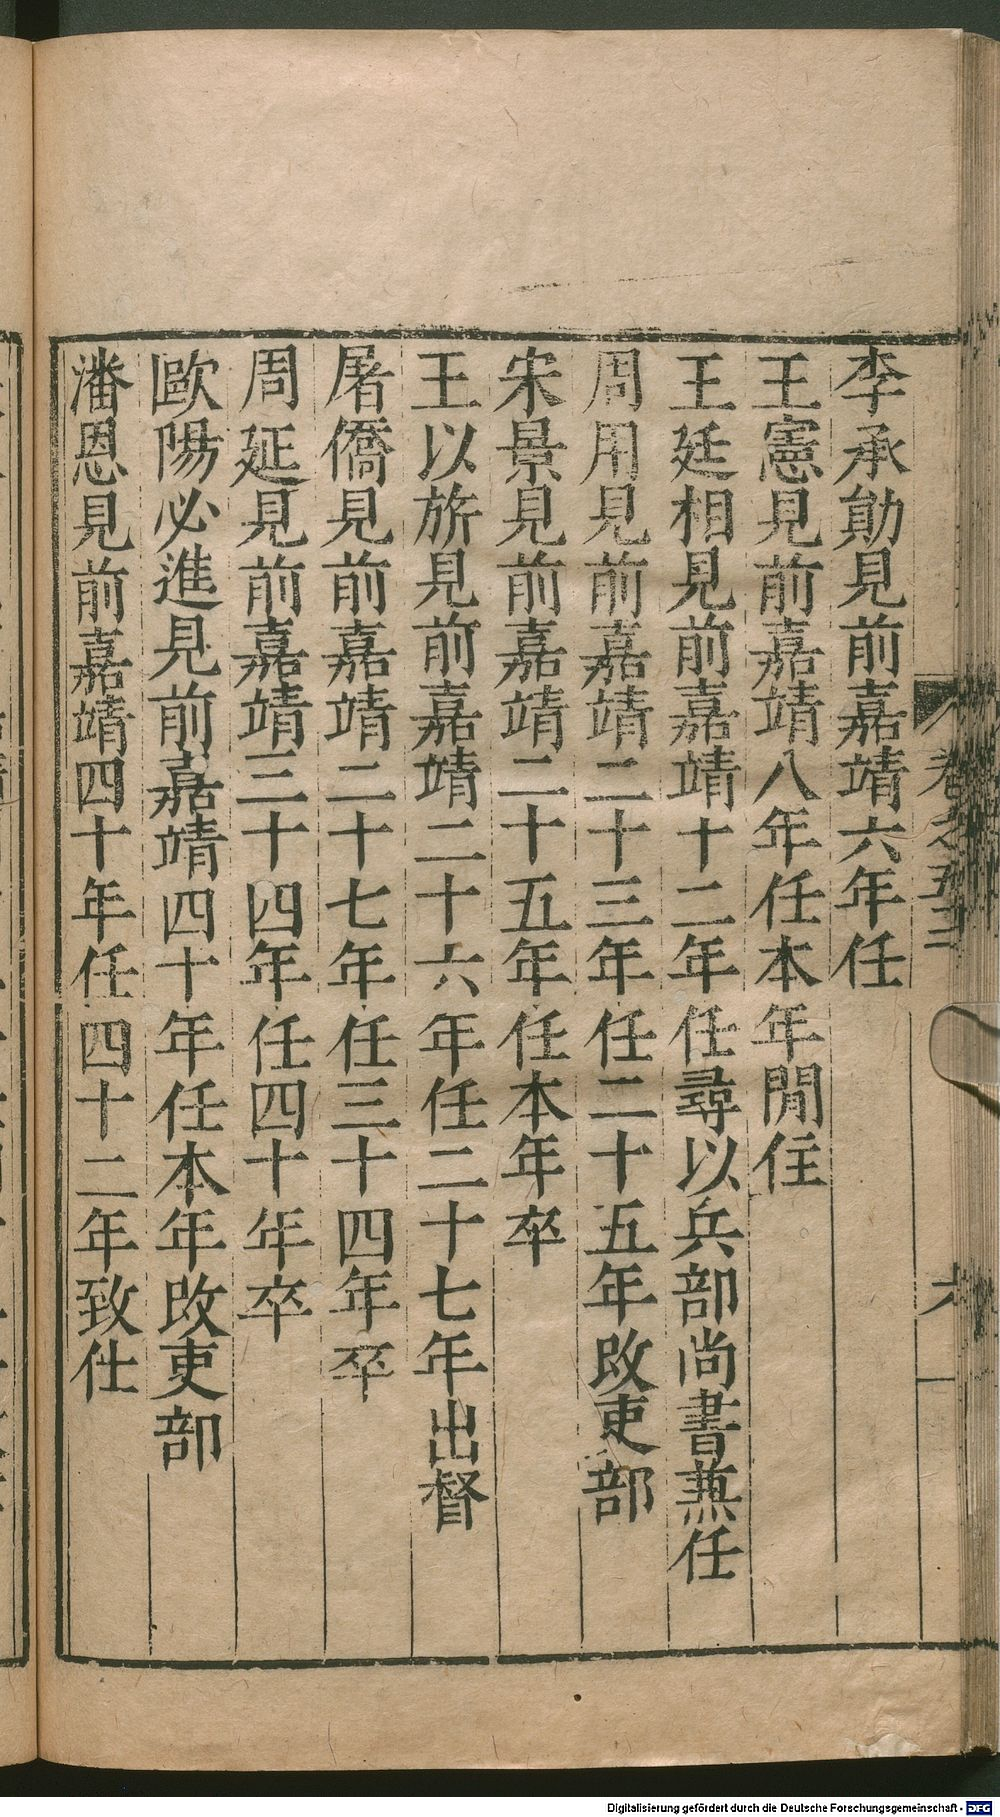 李承勛見前嘉靖六年任
王憲見前嘉靖八年任本年閒住
王廷相見前嘉靖十二年任尋以兵部尚書兼任
周用見前嘉靖二十三年任二十五年改吏部
宋景見前嘉靖二十五年任本年卒
王以旂見前嘉靖二十六年任二十七年出督
屠僑見前嘉靖二十七年任三十四年卒
周延見前嘉靖三十四年任四十年卒
歐陽必進見前嘉靖四十年任本年改吏部
潘恩見前嘉靖四十年任四十二年致仕
Digitalisierung gefördert durch die Deutsche Forschungsgemeinschaft - DFG